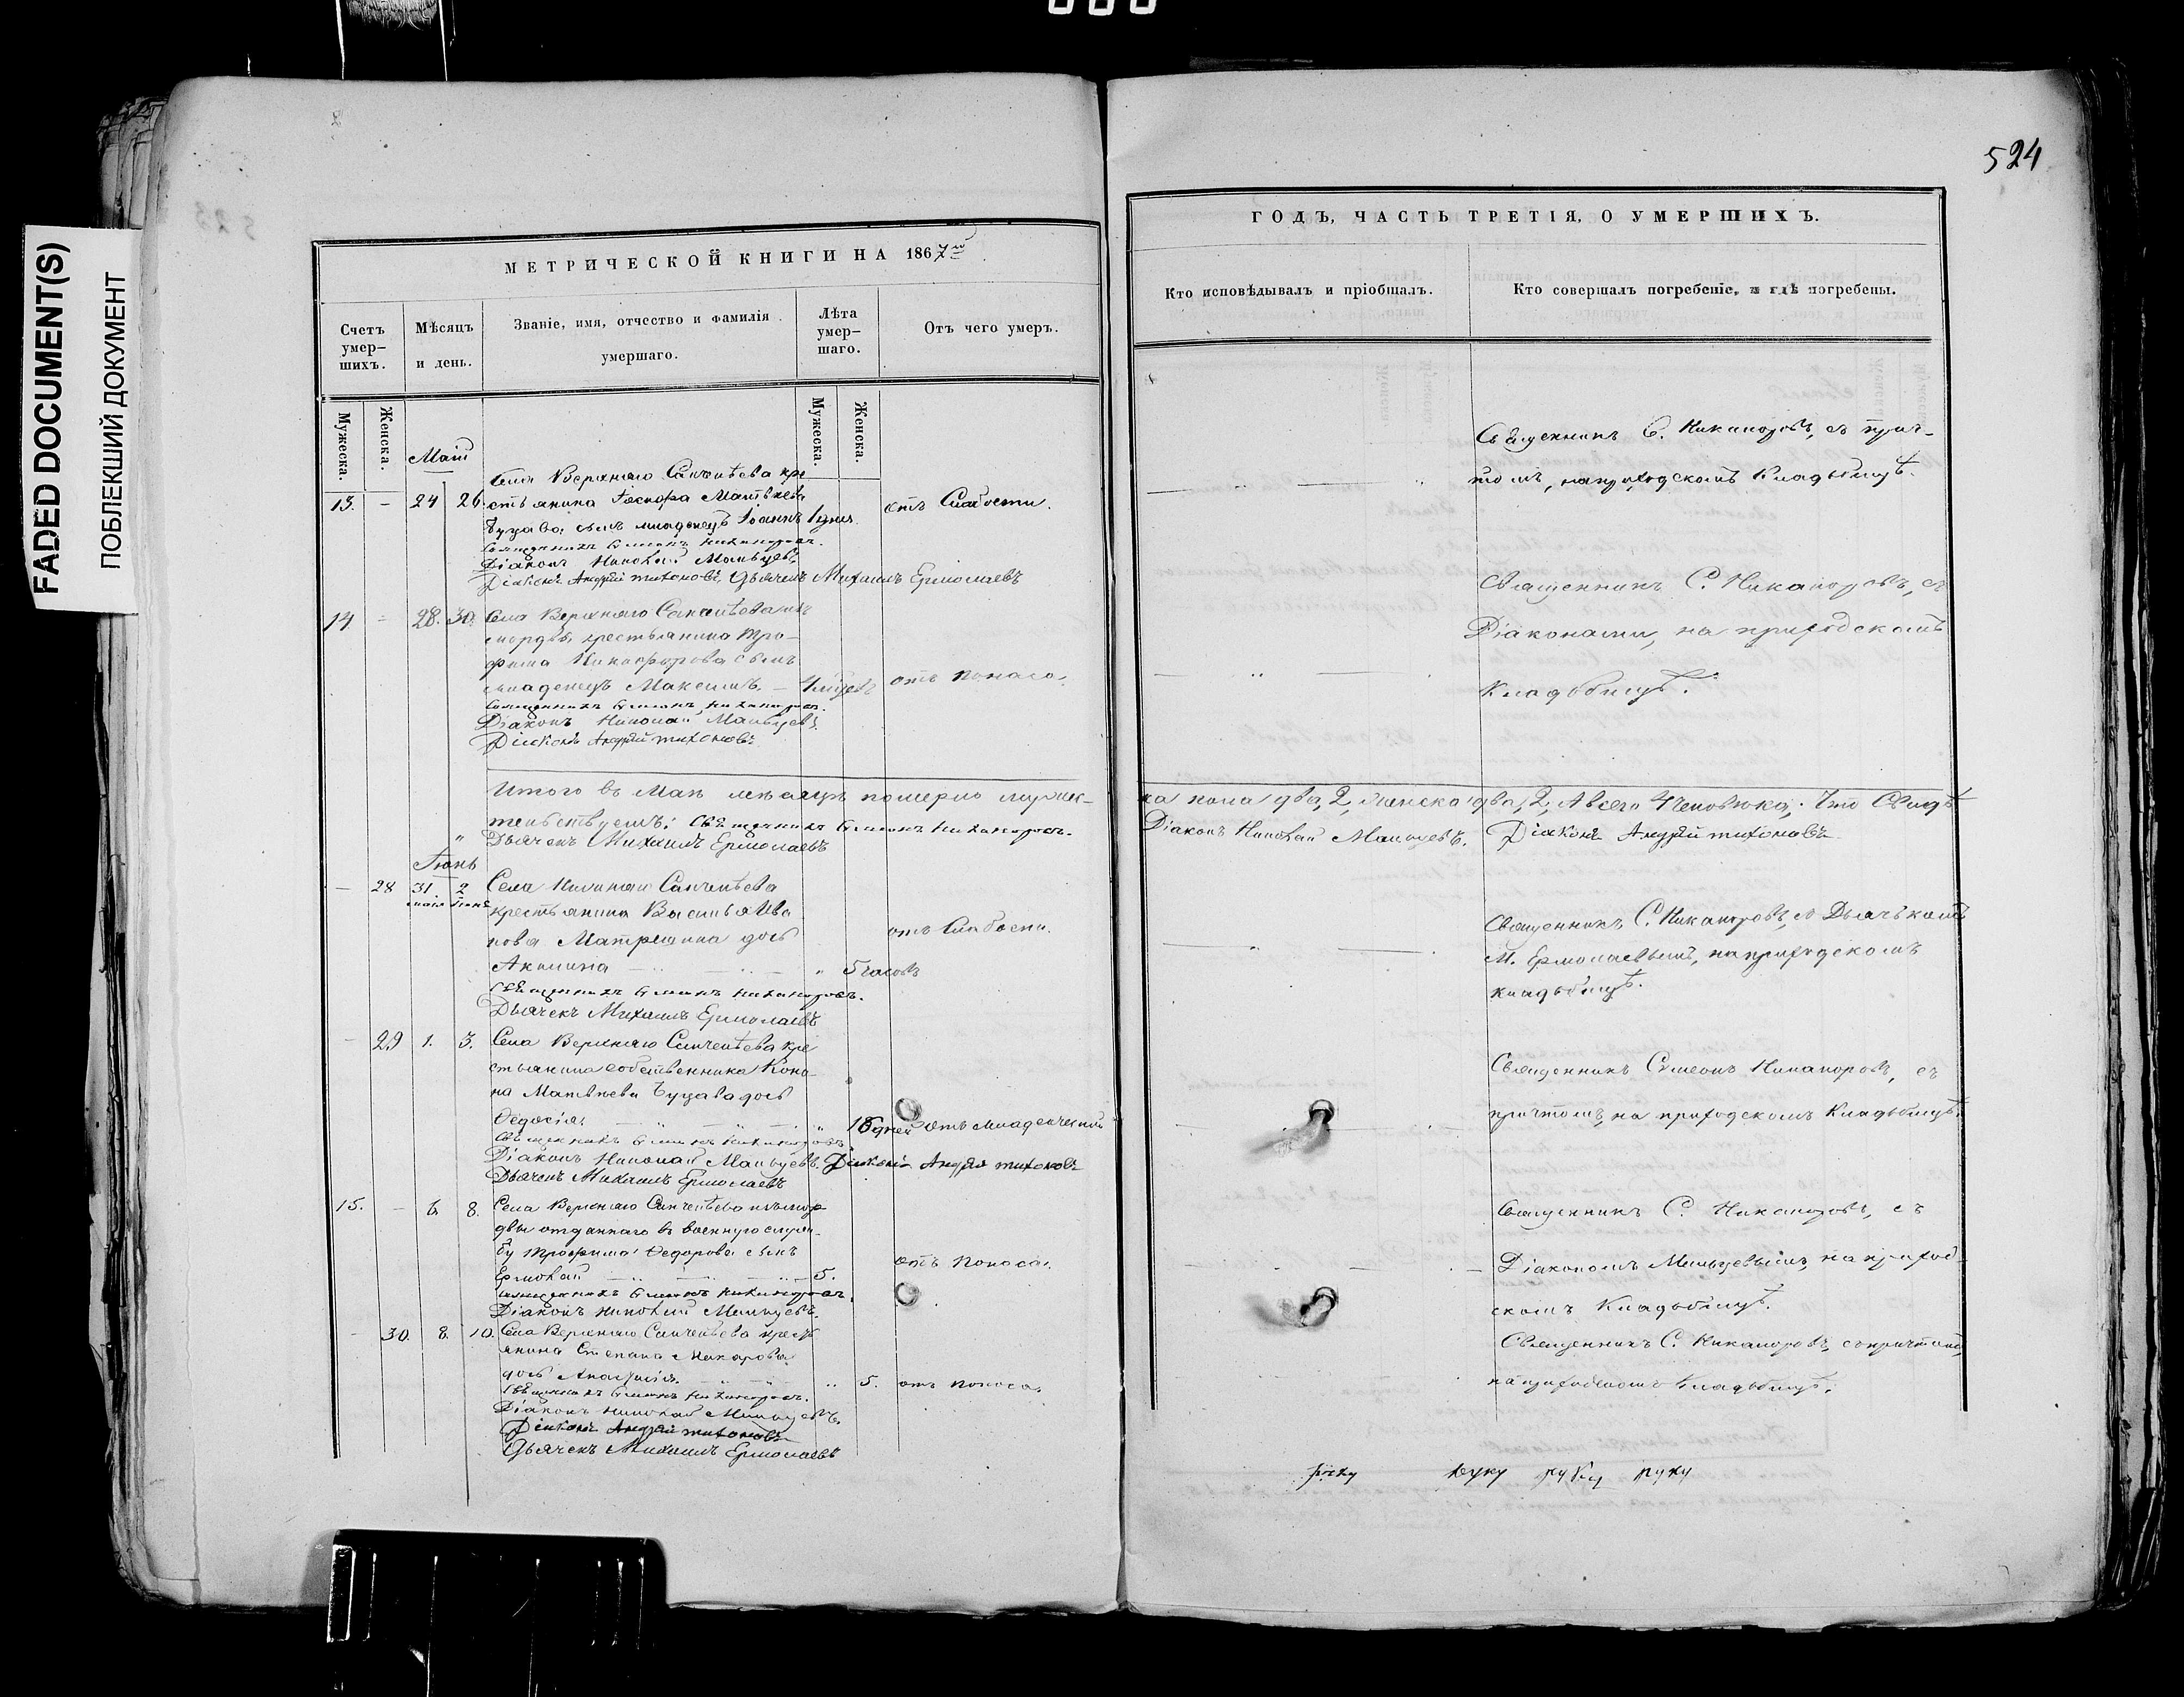 524
FADED DOCUMENT(S)
ПОБЛЕКШИЙ ДОКУМЕНТ
МЕТРИЧЕСКОЙ КНИГИ НА 1867й
Счетъ умер-шихъ.
Мѣсяцъ и день.
Званіе, имя, отчество и фамилія умершаго.
Лѣта умер-шаго.
Отъ чего умеръ.
Мужеска.
Женска.
Мужеска.
Женска.
Маій
Села Верхняго кре
13. - 24 26. стьянина Матвѣева отъ Слабости.
сынъ младенецъ Іоаннъ
Священникъ Симеонъ Никаноровъ.
Діаконъ Николай Мальцевъ.
Діаконъ Андрей Тихоновъ, Дьячекъ Михаилъ Ермолаевъ
14 - 28. 30. Села Верхняго
крестьянина Тро-
фима Никифорова сынъ
младенецъ Максимъ. отъ поноса.
Священникъ Симеонъ Никаноровъ.
Діаконъ Николай Мальцевъ.
Діаконъ Андрей Тихоновъ
Итого въ Маѣ мѣсяцѣ померло мужес-
тельствуемъ: Священникъ Симеонъ Никаноровъ.
Дьячекъ Михаилъ Ермолаевъ
Іюнь
- 28 31. 2 Села
мая Іюня крестьянина Василья Ива
нова дочь отъ Слабости.
Акилина - 5 часовъ
Священникъ Симеонъ Никаноровъ.
Дьячекъ Михаилъ Ермолаевъ
- 29 1. 3. Села Верхняго кре
стьянина собственника Коно
на Матвѣева дочь
Ѳедосія. дней отъ младенческой
Священникъ Симеонъ Никаноровъ
Діаконъ Николай Мальцевъ. Діаконъ Андрей Тихоновъ
Дьячекъ Михаилъ Ермолаевъ
15. - 6. 8. Села Верхняго
двы отданнаго въ военную служ-
бу Трофима Ѳедорова сынъ отъ поноса.
Ермолай 5.
Священникъ Симеонъ Никаноровъ.
Діаконъ Николай Мальцевъ.
- 30. 8. 10. Села Верхняго кресть
янина Степана Макарова
дочь 5. отъ поноса.
Священникъ Симеонъ Никаноровъ.
Діаконъ Николай Мальцевъ.
Діаконъ Андрей Тихоновъ
Дьячекъ Михаилъ Ермолаевъ
ГОДЪ, ЧАСТЬ ТРЕТІЯ, О УМЕРШИХЪ.
Кто исповѣдывалъ и пріобщалъ.
Кто совершалъ погребеніе, и гдѣ погребены.
Священникъ С. Никаноровъ, съ прич-
томъ, на приходскомъ кладбищѣ.
Священникъ С. Никаноровъ, съ
Діаконами, на приходскомъ
Кладбищѣ.
ка пола два, 2, женска два, 2, А всего 4 человѣка. Что Свидѣ
Діаконъ Николай Мальцевъ. Діаконъ Андрей Тихоновъ
Священникъ С. Никаноровъ, съ Дьячкомъ
М. Ермолаевымъ, на приходскомъ
кладбищѣ.
Священникъ Симеонъ Никаноровъ, съ
причтомъ, на приходскомъ Кладбищѣ.
Священникъ С. Никаноровъ, съ
Діакономъ Мальцевымъ, на приход-
скомъ Кладбищѣ.
Священникъ С. Никаноровъ, съ причтомъ,
на приходскомъ Кладбищѣ.
руку руку руку руку